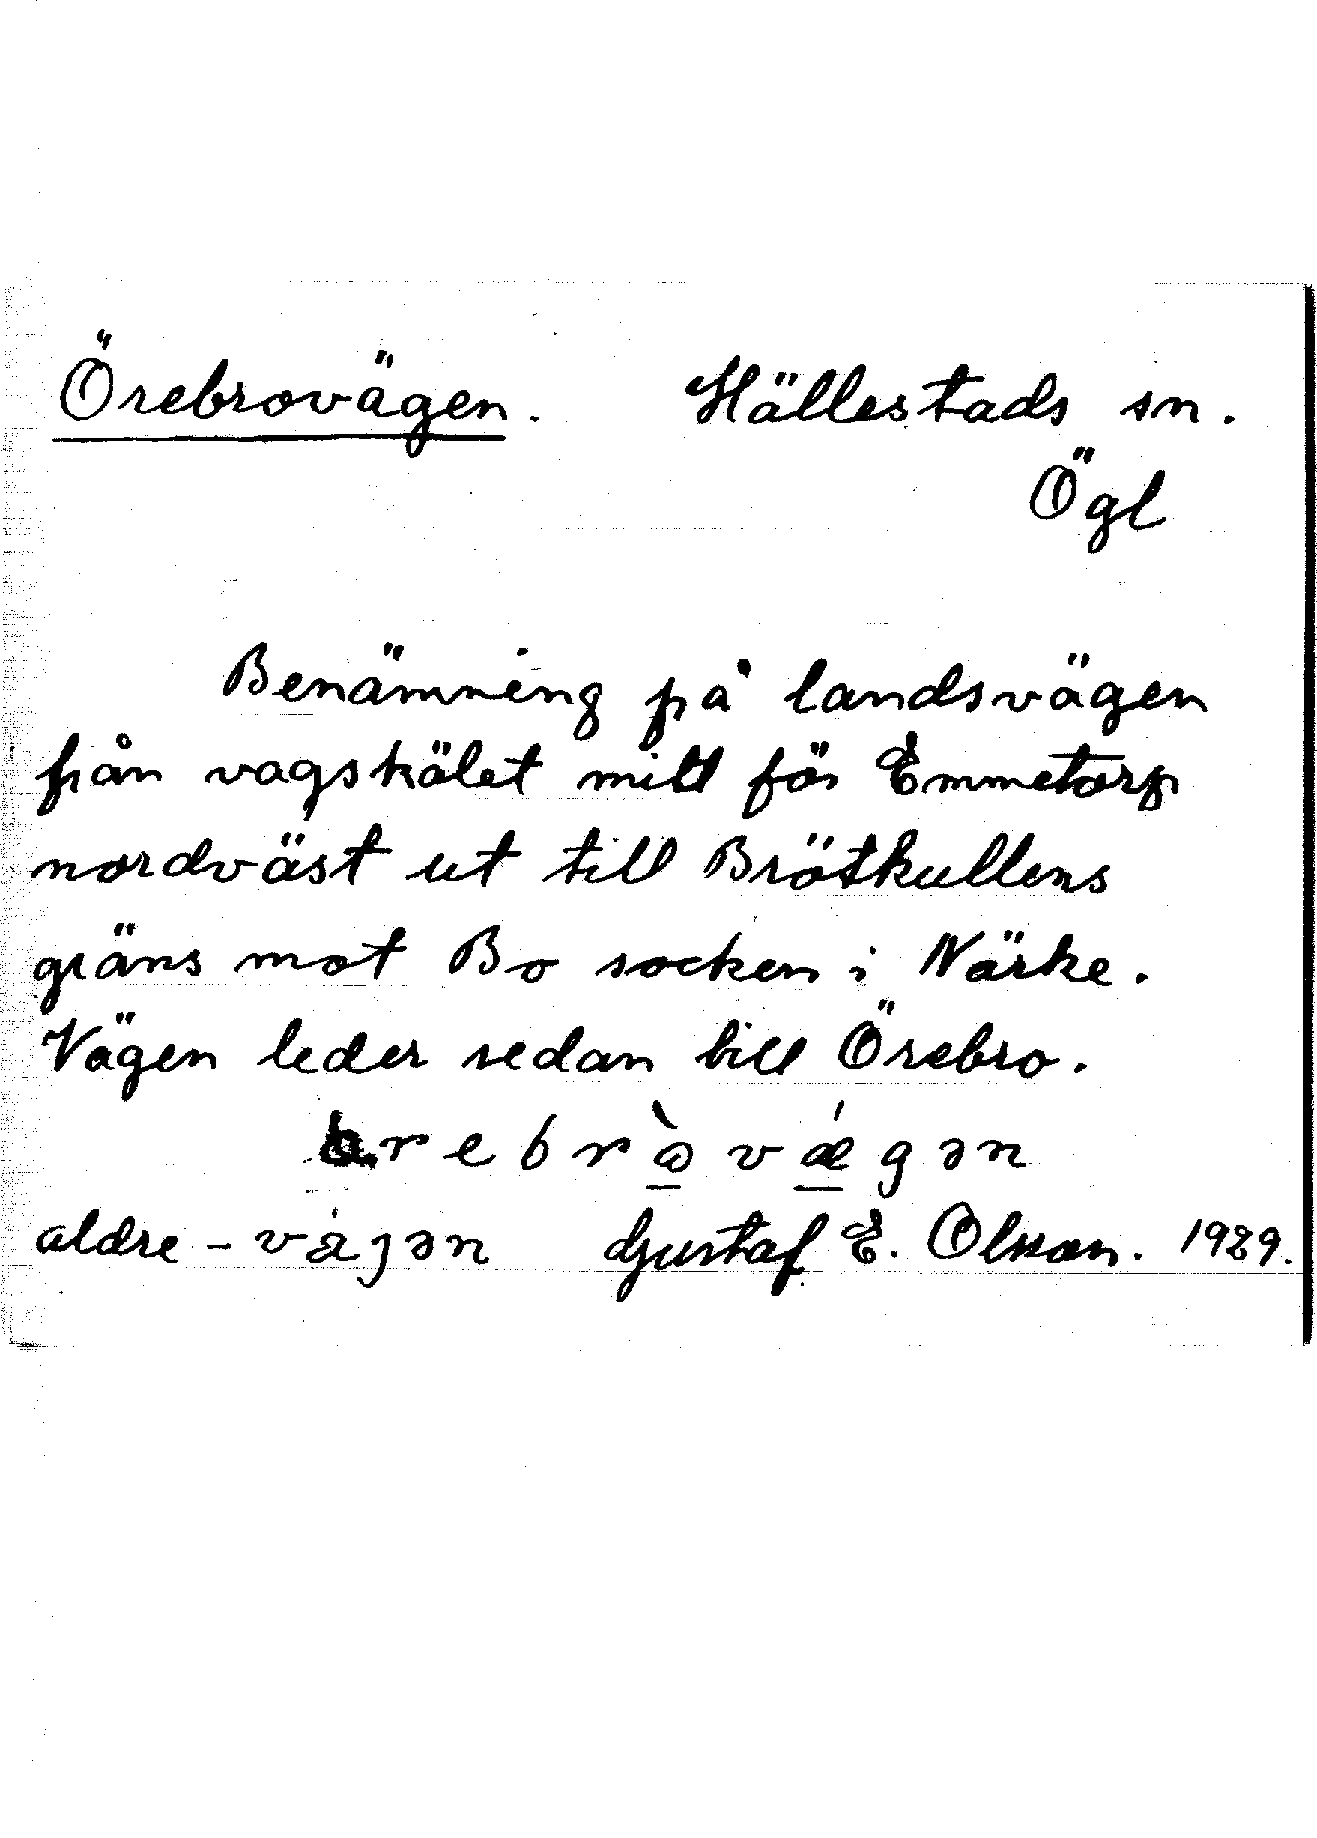 Örebrovägen. Hällestads sn.
Ögl
Benämning på landsvägen
från vagskälet mitt för Emmetorp
nordväst ut till Brötkullens
gräns mot Bo socken i Närke.
Vägen leder sedan till Örebro.
rebrɷ̀vǽgən
aldre - vǽgən Gustaf E. Olsson. 1929.